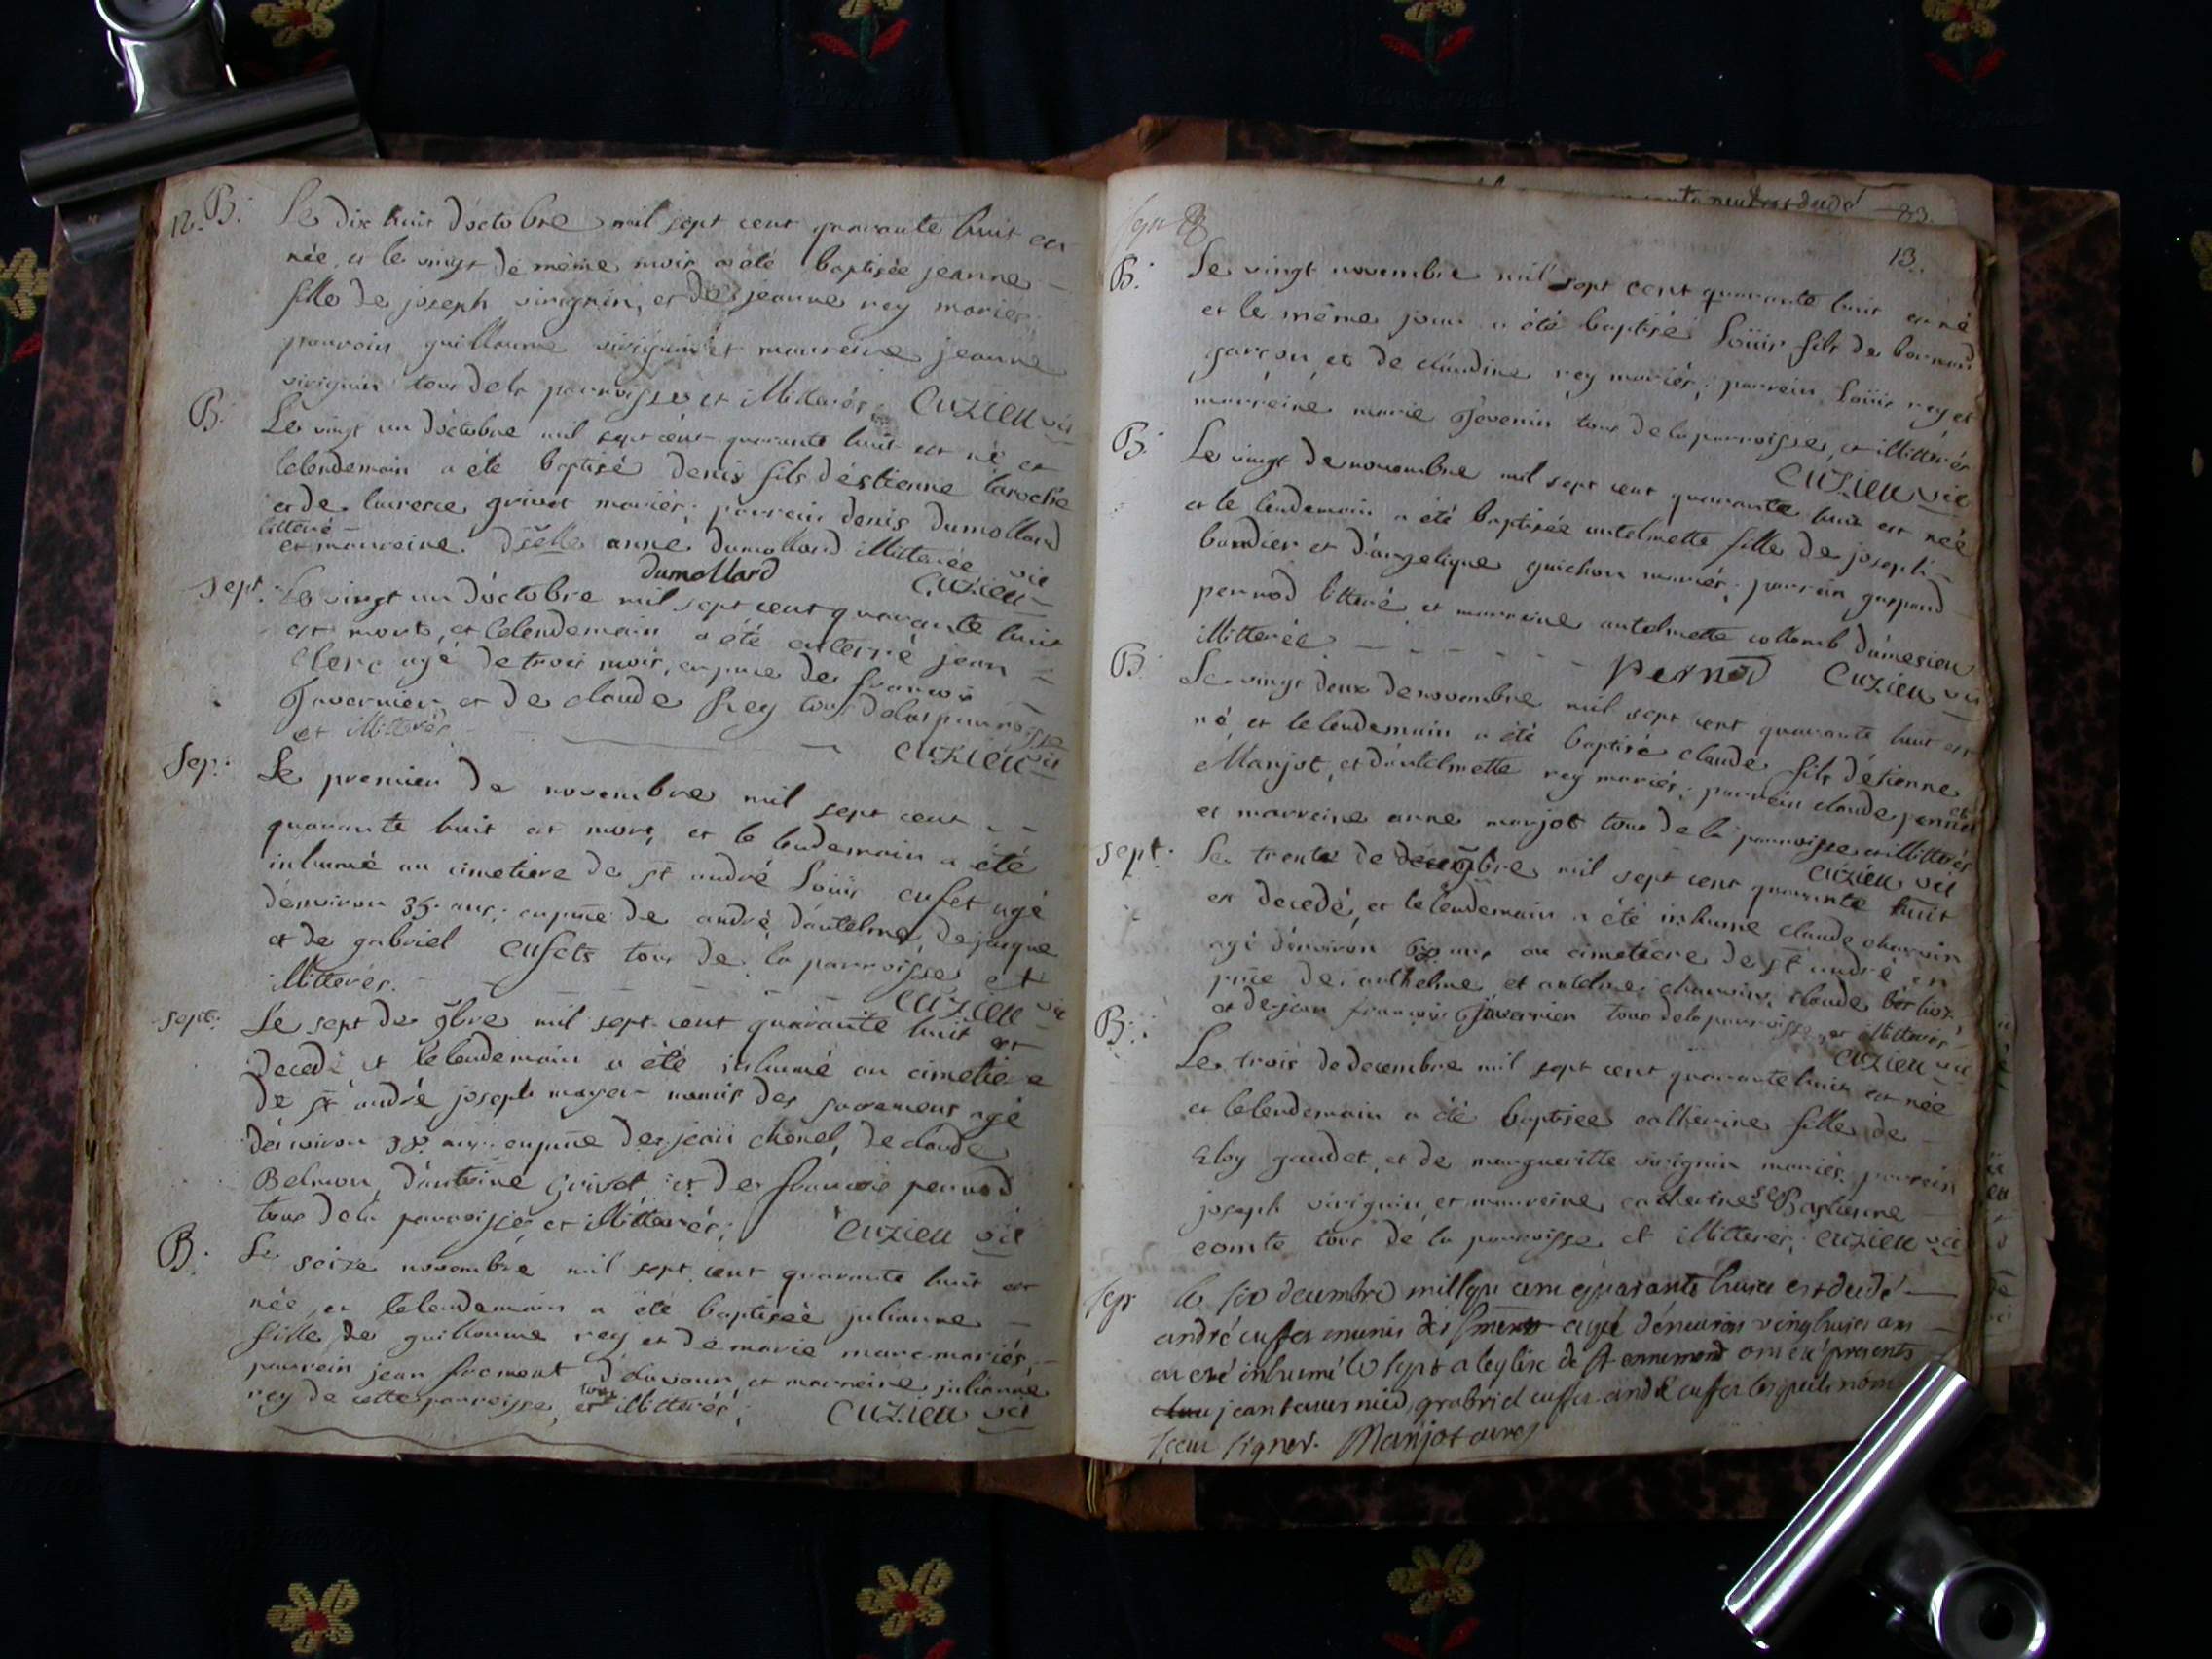 12. B. Le dix huit d'octobre mil sept cent quarante huit est
née, et le vingt de même mois a été baptisée jeanne
fille de joseph virignin, et de jeanne rey mariés;
parroin guillaume virignin et marreine jeanne
virignin tous de la parroisse et illitterés; Cuzieu vic
B. Le vingt un d'octobre mil sept cent quarante huit est né et
lelendemain a été baptisé denis fils d'éstienne laroche
et de laurence grivet mariés; parrein denis dumollard
litteré
et marreine dselle anne dumollard illitterée
dumollard Cuzieu vic
Sept. Le vingt un d'octobre mil sept cent quarante huit
est mort, et lelendemain a été enterré jean
Clerc agé de trois mois, en pnce de françois
Tavernier et de claude Rey tous de la parroisse
et illitterés Cuzieu vic
Sep. Le premier de novembre mil sept cent
quarante huit est mort, et le lendemain a été
inhumé au cimetiere de st andré Loüis cufet agé
d'environ 35 ans; en pnce de andré, d'antelme, de jacque
et de gabriel cufets tous de la parroisse et
illitterés. Cuzieu vic
Sept. Le sept de 9bre mil sept cent quarante huit est
decedé et lelendemain a été inhumé au cimetiere
de st andré joseph mayer munis des sacremens agé
d'environ 38 ans; en pnce de jean chenel, de claude
Belmon, d'antoine Grivet et de françois pernod
tous de la parroisse et illitterés; Cuzieu vic
B. Le seize novembre mil sept cent quarante huit est
née, et lelendemain a été baptisée julianne
fille de guillaume rey et de marie marc mariés,
parrein jean froment et marreine julianne
tous
rey de cette parroisse, et illitterés; Cuzieu vic
13.
B. Le vingt novembre mil sept cent quarante huit est né
et le même jour a été baptisé Loüis fils de bernard
garçon, et de claudine rey mariés; parrein Loüis rey et
marreine marie Tevenin tous de la parroisse, et illitterés
Cuzieu vic
B. Le vingt de novembre mil sept cent quarante huit est née
et le lendemain a été baptisée antelmette fille de joseph
bardier et d'angelique guichon mariés; parrein gaspard
pernod litteré, et marreine antelmette collomb d'amesieu
illitterée. Pernod Cuzieu vic
B. Le vingt deux de novembre mil sept cent quarante huit est
né, et lelendemain a été baptisé claude fils d'etienne
Manjot, et d'antelmette rey mariés; parrein claude
et marreine anne manjot tous de la parroisse et illitterés
Cuzieu vic
Sept. Le trente de 9bre mil sept cent quarante huit
est decedé, et lelendemain a été inhumé claude charvin
agé d'environ ans au cimetiere de st andré en
pnce de anthelme, et antelme charvins, claude berlioz,
et de jean françois Taverrier tous de la parroisse, et illitterés
Cuzieu vic
B. Le trois de decembre mil sept cent quarante huit est née
et lelendemain a été baptisée catherine fille de
Eloy gaudet, et de margueritte virignin mariés, parrein
joseph virignin, et marreine catherine sebastienne
comte tous de la parroisse et illitterés; Cuzieu vic
Sep. le six decembre mil sept cent quarante huit est decedé
andré cuffet munis des agé d'environ vingt huit ans
a eté inhumé le sept a leglise de St ennemond ont eté presents
jean tavernied, grabriel cuffet andré cuffet lesquels n'ont
sceu signer. Manjot